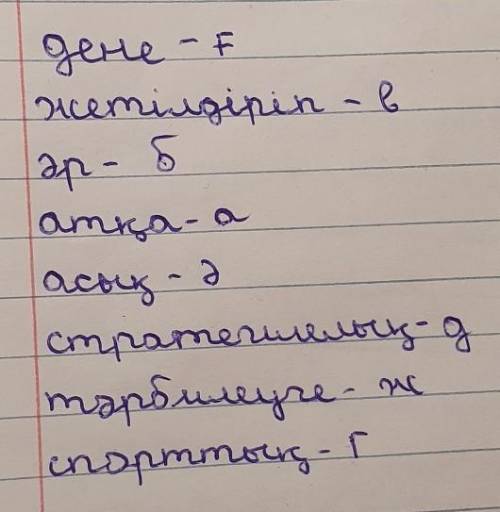 дене - ғ
жетілдіріп - в
әр - б
атқа - а
асық - ә
стратегиялық - д
тәрбиелеуге - ж
спорттық - г